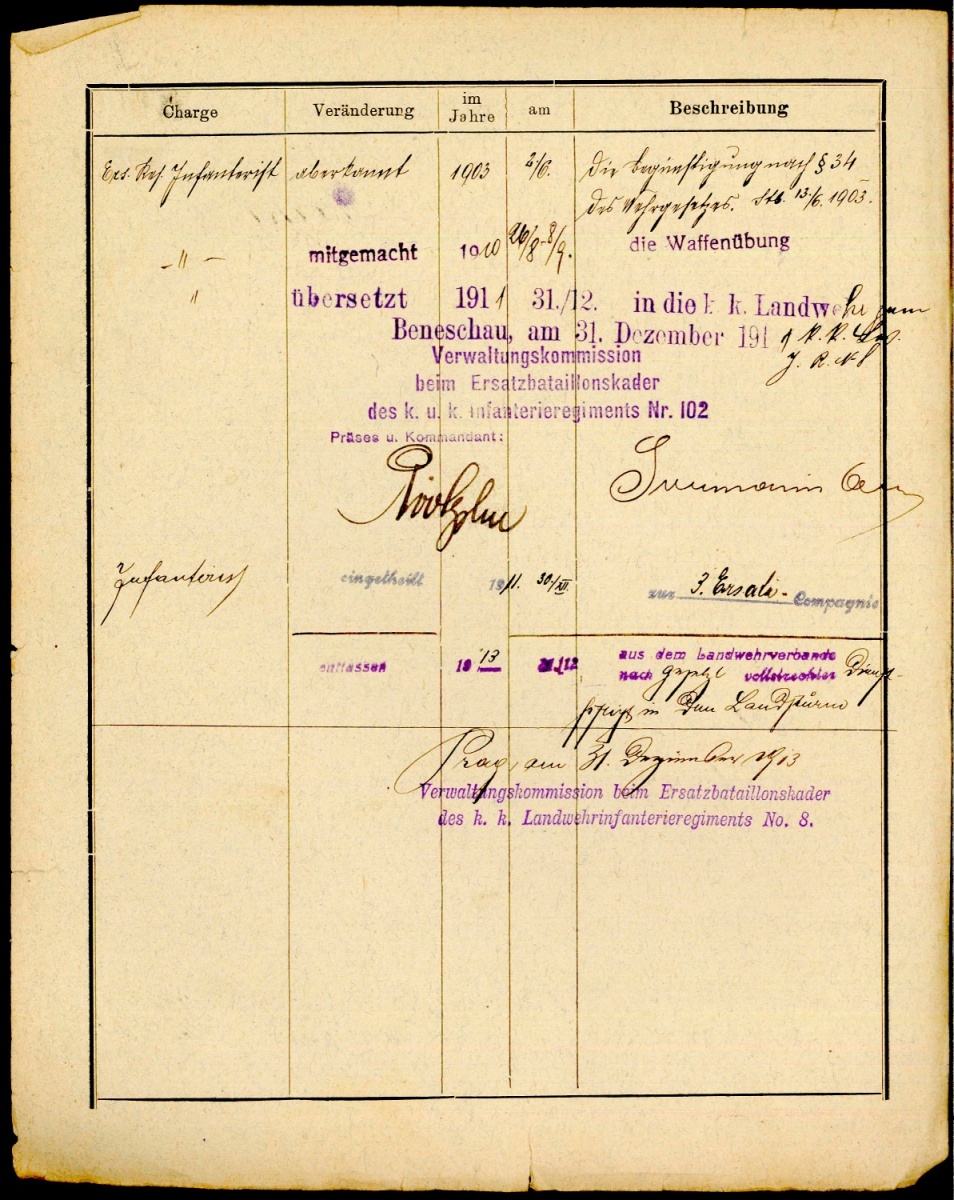 Charge Veränderung im Jahre am Beschreibung
Ers. Res. Infanterist aberkannt 1903 2/6. die Begünstigung nach § 34
des Wehrgesetzes. 13./6. 1903.
-"- mitgemacht 1910 26/8-8/9. die Waffenübung
" übersetzt 1911 31./12. in die k. k. Landwehr zum
Beneschau, am 31. Dezember 191 k. k. Lw.
Verwaltungskommission J. R. No 8
beim Ersatzbataillonskader
des k. u. k. Infanterieregiments Nr. 102
Präses u. Kommandant:
Infanterist eingetheilt 1911. 30./XII. zur 3. Ersatz- Compagnie
entlassen 1913 31./12 aus dem Landwehrverbande
nach Gesetzl vollstreckter Dienst-
pflicht in den Landsturm
Prag, am 31. Dezember 1913
Verwaltungskommission beim Ersatzbataillonskader
des k. k. Landwehrinfanterieregiments No. 8.